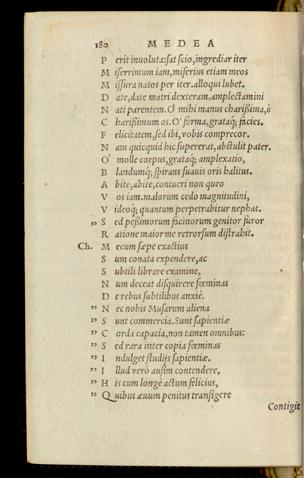 180 MEDEA
P erit inuoluta: sat scio, ingrediar iter
M iserrimum iam, miserius etiam meos
M issura natos per iter. alloqui lubet.
D ate, date matri dexteram, amplectamini
N ati parentem. O' mihi manus charißima, ò
C harißimum os. O' forma, grataq́; facies.
F elicitatem, sed ibi, vobis comprecor.
N am quicquid hic supererat, abstulit pater.
O' molle corpus, grataq́; amplexatio,
B landumq́; spirans suauis oris halitus.
A bite, abite, contueri non queo
V os iam. malorum cedo magnitudini,
V ideoq́; quantum perpetrabitur nephas.
„ S ed peßimorum facinorum genitor furor
R atione maior me retrorsum distrahit.
Ch. M ecum sæpe exactius
S um conata expendere, ac
S ubtili librare examine,
N um deceat disquirere fœminas
D e rebus subtilibus anxiè.
„ N ec nobis Musarum aliena
„ S unt commercia. Sunt sapientiæ
„ C orda capacia, non tamen omnibus:
„ S ed rara inter copia fœminas
„ I ndulget studijs sapientiæ.
„ I llud verò ausim contendere,
„ H is cum longè actum felicius,
„ Q uibus æuum penitus transigere
Contigit